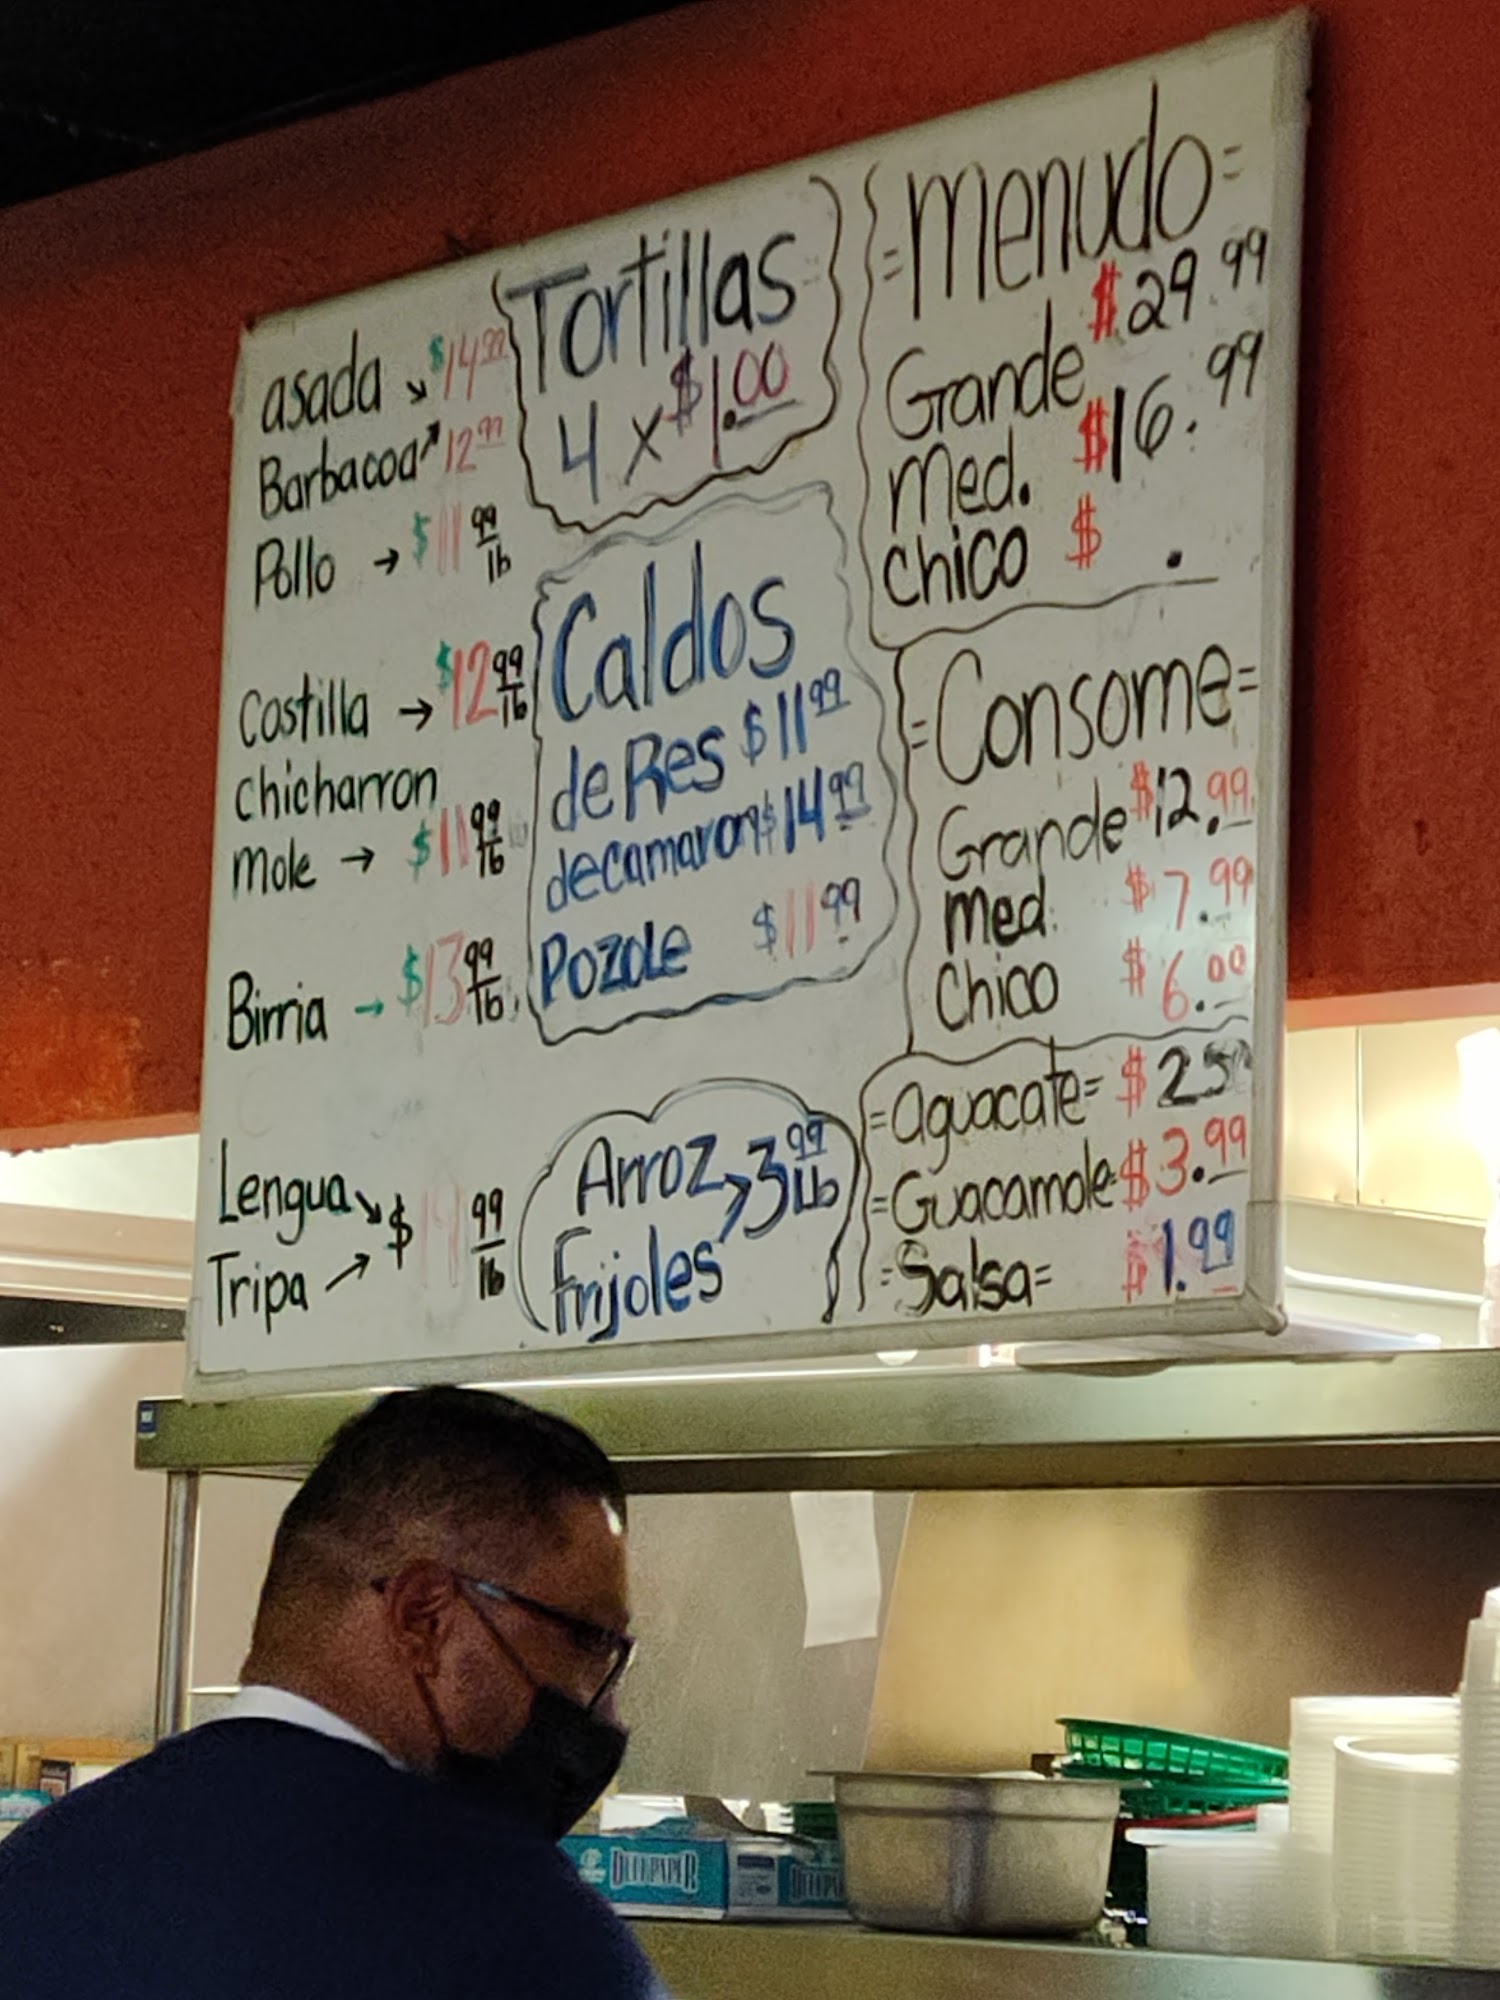 asada $14.99
Barbacoa 12.99
Pollo → $11 99/lb
Costilla → $12 99/lb
chicharron
mole → $11 99/lb
Birria → $13 99/lb
Lengua
Tripa → $ 99/lb
Tortillas
4 x $1.00
Caldos
de Res $11 99
de camaron $14 99
Pozole $11 99
Arroz 3 99 Lb
Frijoles
=menudo=
Grande $29.99
med. $16.99
chico $ .
=Consome=
Grande $12.99
med. $7.99
chico $6.00
=aguacate= $
=Guacamole= $3.99
=Salsa= $1.99
CUTPAPER